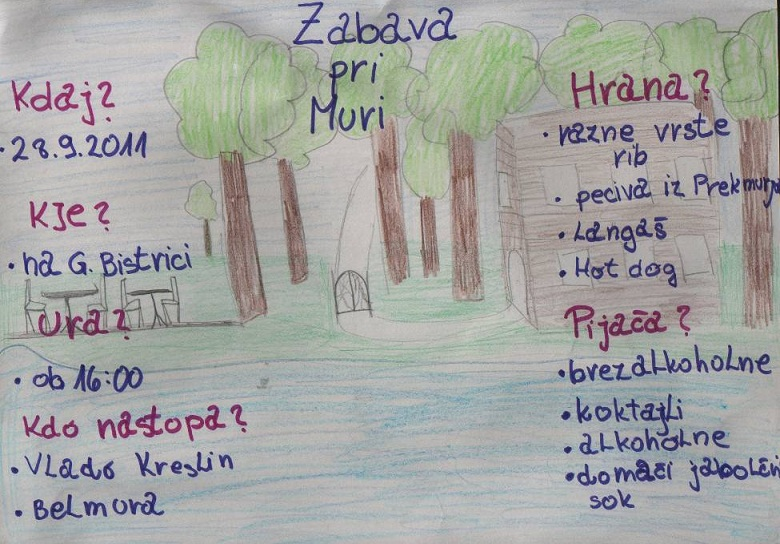 Zabava
pri
Muri
Kdaj?
• 28.9.2011
Kje?
• na G. Bistrici
Ura?
• ob 16:00
Kdo nastopa?
• Vlado Kreslin
• Belmura
Hrana?
• razne vrste
rib
• peciva iz Prekmurja
• Langaš
• Hot dog
Pijača?
• brezalkoholne
• koktajli
• alkoholne
• domači jabolčn
sok